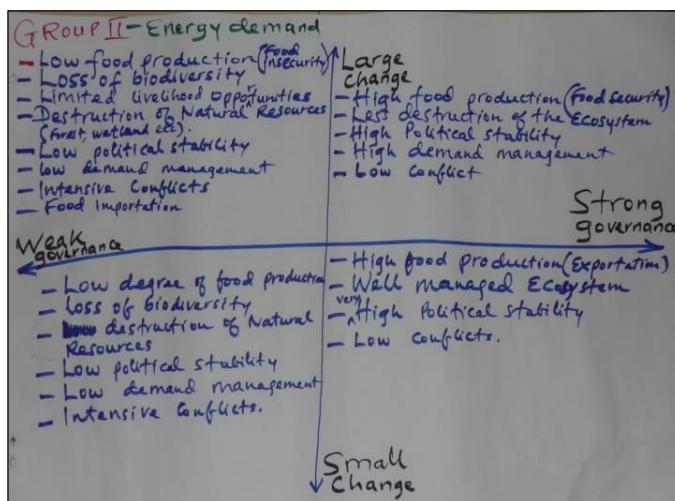 GROUP II - Energy demand
- Low food production (Food insecurity)
- Loss of biodiversity
- Limited livelihood opportunities
- Destruction of Natural Resources
(forest, wetland etc).
- Low political stability
- low demand management
- Intensive Conflicts
- Food importation
Large
Change
- High food production (Food security)
- Less destruction of the Ecosystem
- High Political stability
- High demand management
- Low conflict
Strong
governance
Weak
governance
- Low degree of food production
- Loss of biodiversity
- destruction of Natural
Resources
- Low political stability
- Low demand management
- Intensive Conflicts.
- High food production (Exportation)
- Well managed Ecosystem
- very High Political stability
- Low conflicts.
Small
Change